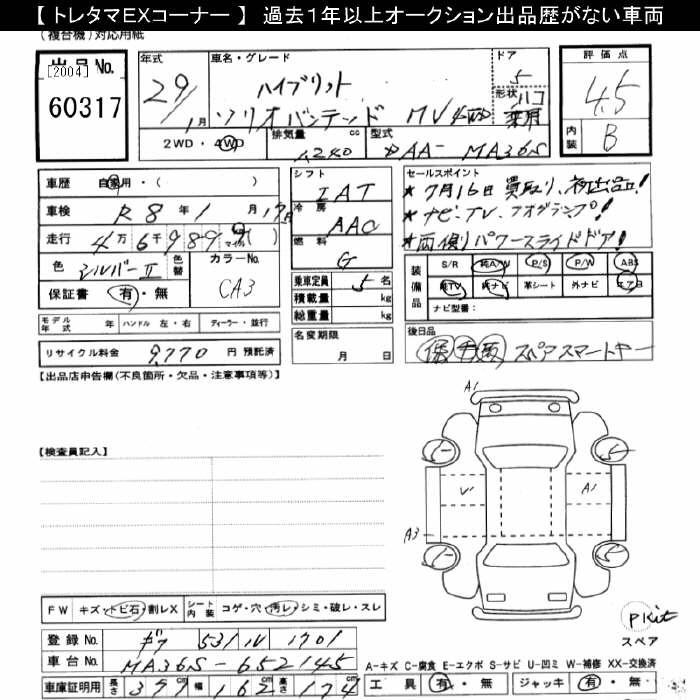 【 トレタマEXコーナー 】 過去1年以上オークション出品歴がない車両
(複合機)対応用紙
出品No.
[2004]
60317
年式
29/1月
車名・グレード
ハイブリット
ソリオバンデッド MV 4WD
ドア
5
形状
ハコ
乗用
評価点
4.5
内装
B
2WD・4WD
排気量
1,240 cc
型式
DAA- MA36S
車歴 自家用・( )
車検 R8年1月17日
走行 4万6千989 マイル
色 シルバーII 色替
カラーNo.
CA3
保証書 有・無
シフト
IAT
冷房
AAC
燃料
G
乗車定員 5名
積載量 kg
総重量 kg
セールスポイント
★7月16日 買取り、初出品!
★ナビ・TV、フォグランプ!
★両側りパワースライドドア!
装備品
S/R 純A/W P/S P/W ABS
純TV 純ナビ 革シート 外ナビ エアB
ナビ型番:
モデル年式 年 ハンドル 左・右 ディーラー・並行
リサイクル料金 9,770 円 預託済
名変期限
月 日
後日品
保 手 取 スペアスマートキー
【出品店申告欄(不良箇所・欠品・注意事項等)】
【検査員記入】
A1
A1
A3
5
5
5
5
P Kit
スペア
FW キズ・トビ石・割レX シート内装 コゲ・穴・汚レ・シミ・破レ・スレ
登録No. ギフ 531 ル 1701
車台No. MA36S-652145
車庫証明用 長さ 377cm 幅 162cm 高さ 174
A-キズ C-腐食 E-エクボ S-サビ U-凹ミ W-補修 XX-交換済
工具 有・無 ジャッキ 有・無